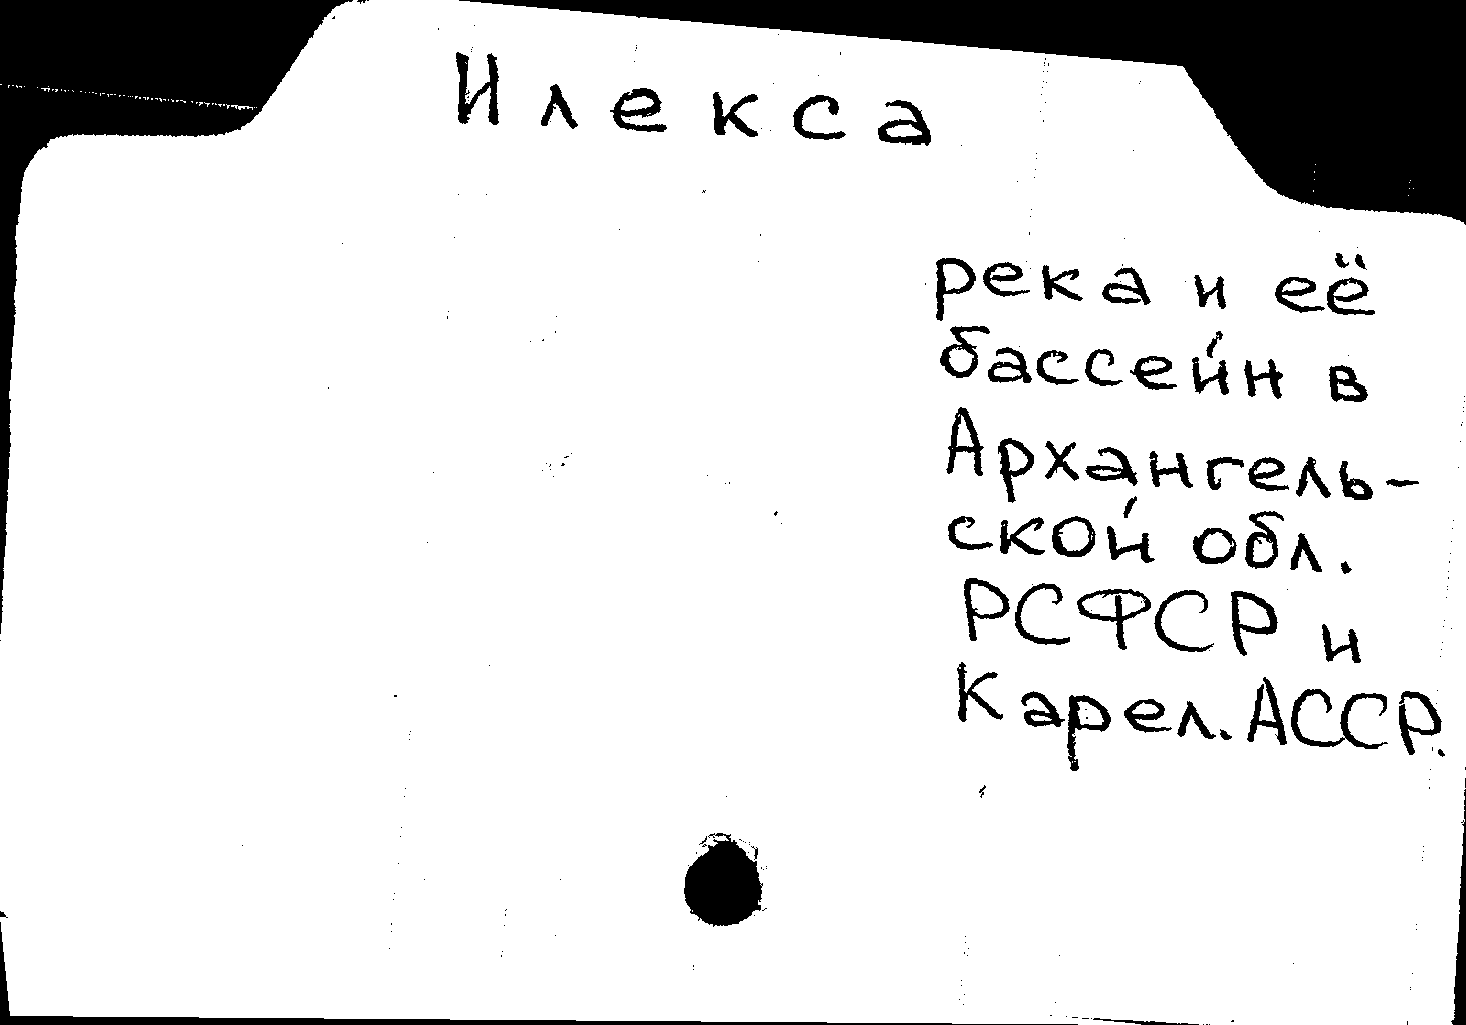 Илекса
река и её
бассейн в
Архангель-
ской обл.
РСФСР и
Карел. АССР.